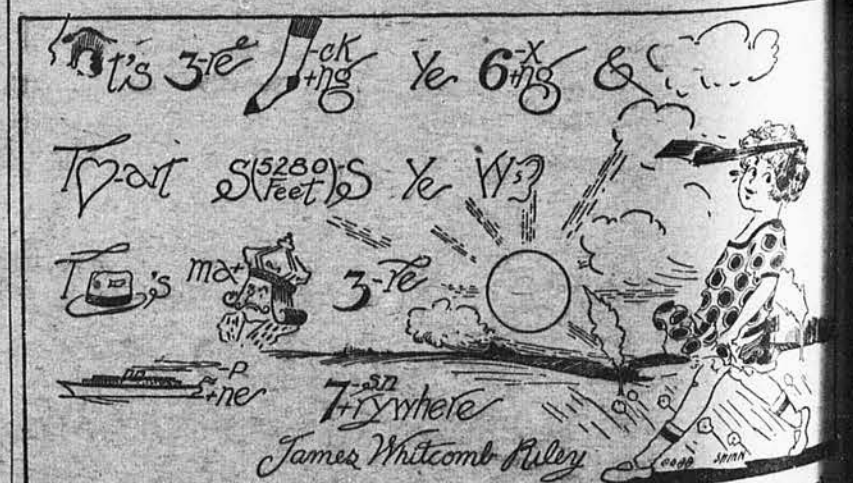 t's 3-re e -ck +ng Ye 6 -x +ng &
T -art S(5280 Feet)-S Ye W s
T 's ma+ 3-re
-P +ne 7 -sn +rywhere
James Whitcomb Riley